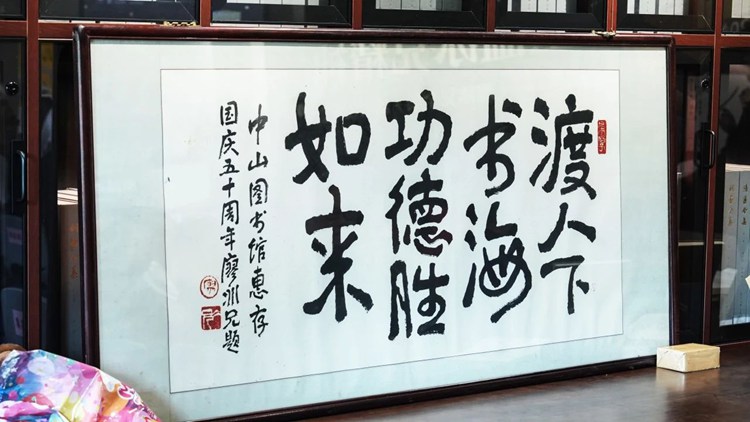 渡人下
书海
功德胜
如来
中山图书馆惠存
国庆五十周年廖冰兄题